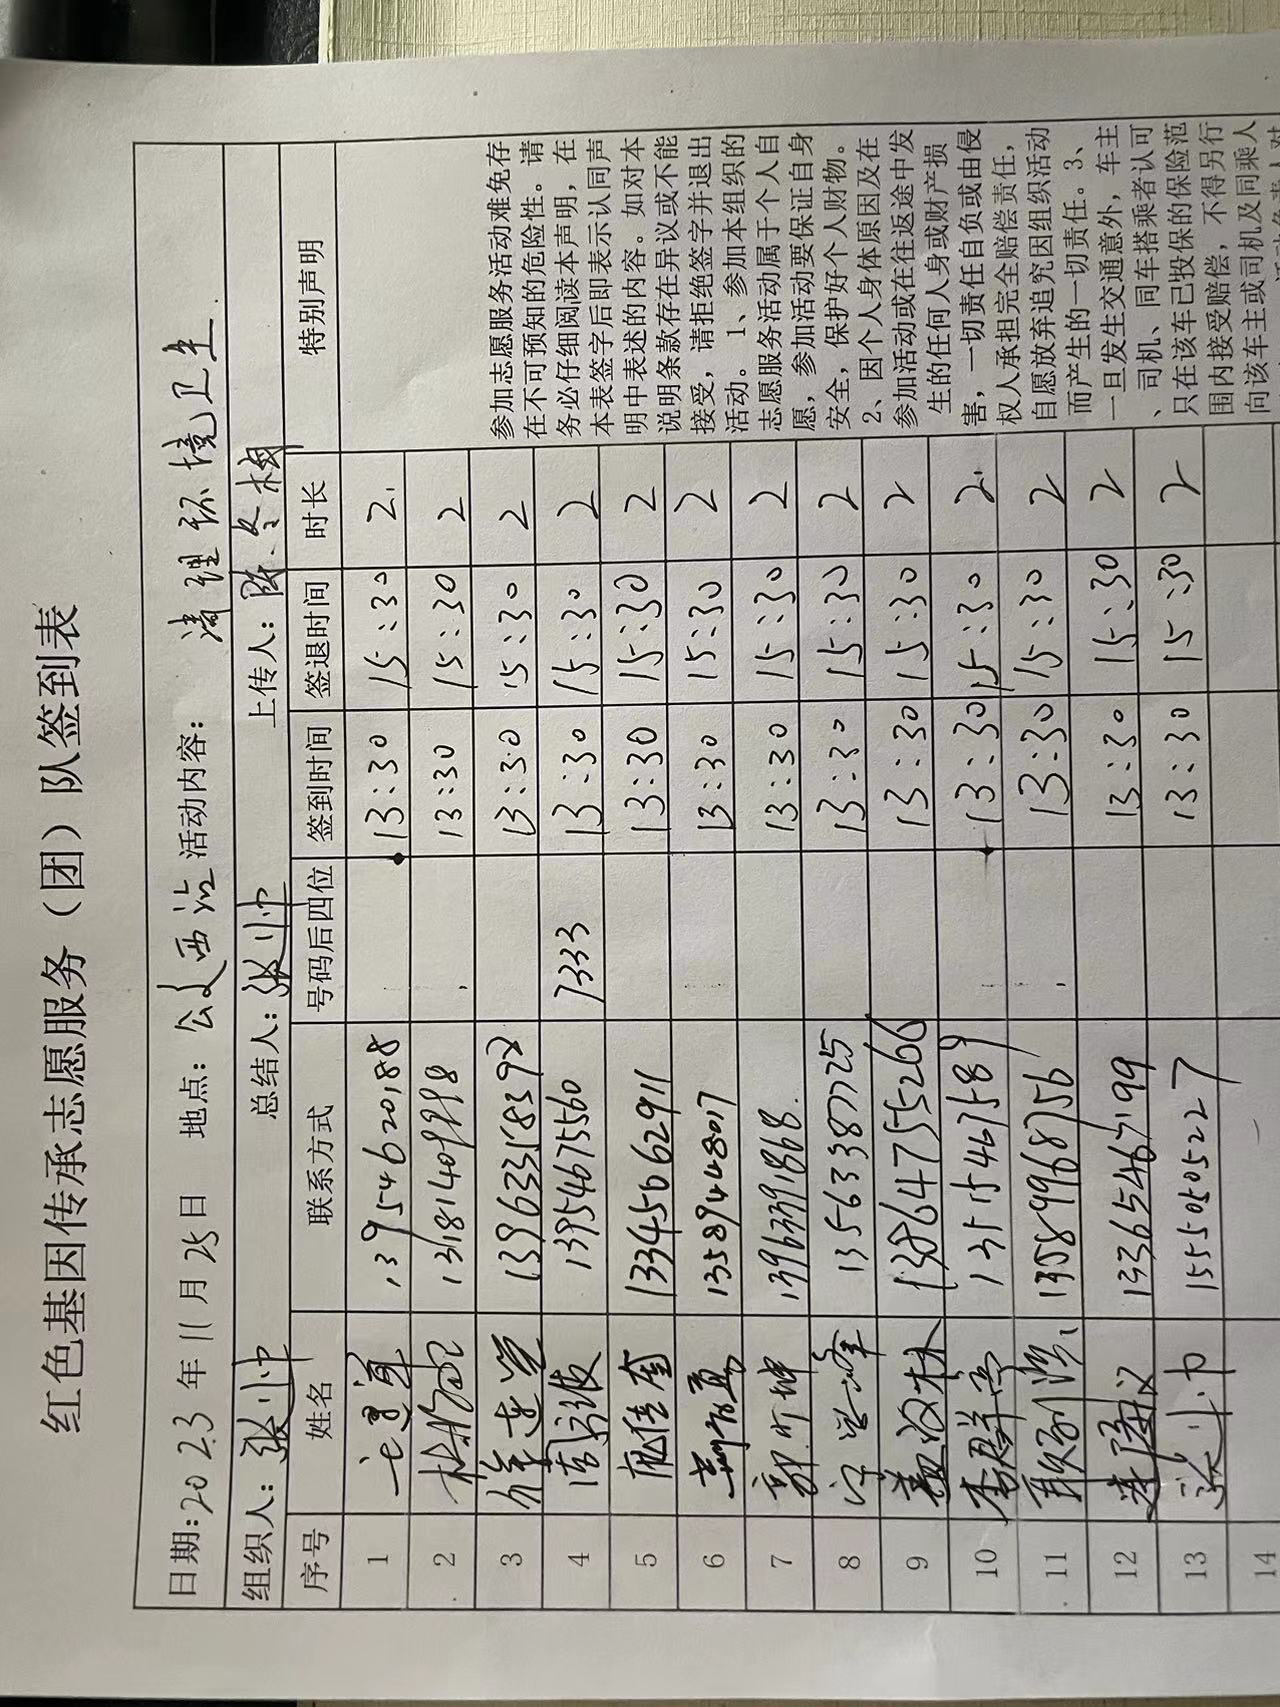 红色基因传承志愿服务（团）队签到表
日期:2023年11月25日 地点: 公交西站 活动内容: 清理环境卫生
组织人: 张帅 总结人: 张帅 上传人: 陈冬梅
序号 姓名 联系方式 号码后四位 签到时间 签退时间 时长 特别声明
1 13954620188 13:30 15:30 2
2 13:30 15:30 2
3 13:30 15:30 2
4 13954675560 7333 13:30 15:30 2
5 13345062911 13:30 15:30 2
6 13589448017 13:30 15:30 2
7 郭 坤 13963391868 13:30 15:30 2
8 13563387725 13:30 15:30 2
9 13:30 15:30 2
10 李群亭 13:30 15:30 2
11 13589968756 13:30 15:30 2
12 13365467199 13:30 15:30 2
13 张帅 15505055227 13:30 15:30 2
14
参加志愿服务活动难免存
在不可预知的危险性。请
务必仔细阅读本声明，在
本表签字后即表示认同声
明中表述的内容。如对本
说明条款存在异议或不能
接受，请拒绝签字并退出
活动。1、参加本组织的
志愿服务活动属于个人自
愿，参加活动要保证自身
安全，保护好个人财物。
2、因个人身体原因及在
参加活动或在往返途中发
生的任何人身或财产损
害，一切责任自负或由侵
权人承担完全赔偿责任，
自愿放弃追究因组织活动
而产生的一切责任。3、
一旦发生交通意外，车主
、司机、同车搭乘者认可
只在该车已投保的保险范
围内接受赔偿，不得另行
向该车主或司机及同乘人